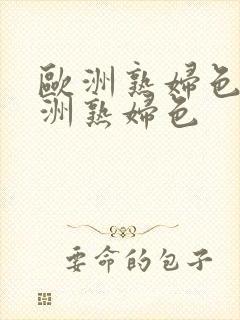 歐洲熟婦色
洲熟婦色
要命的包子